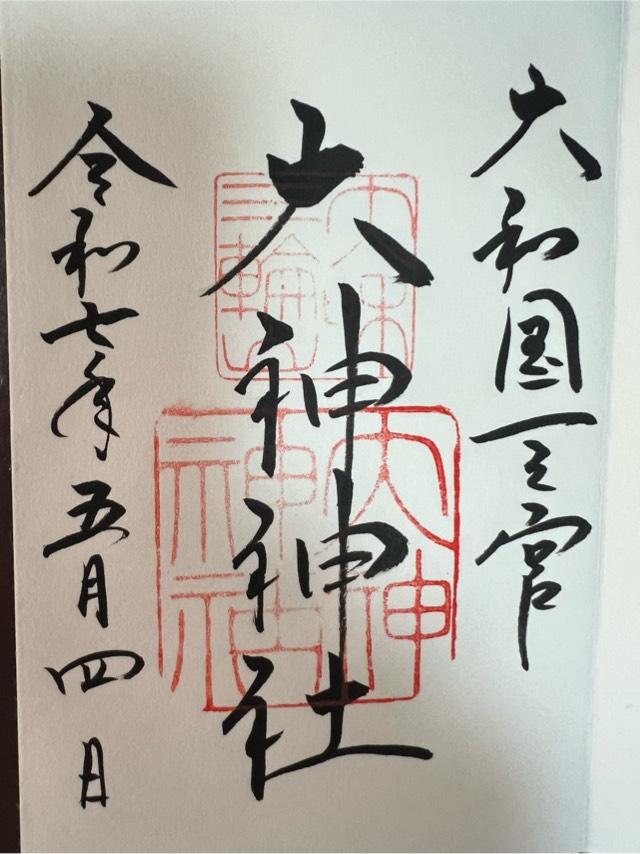 大和国一之宮
大神神社
令和七年五月四日
大神神社